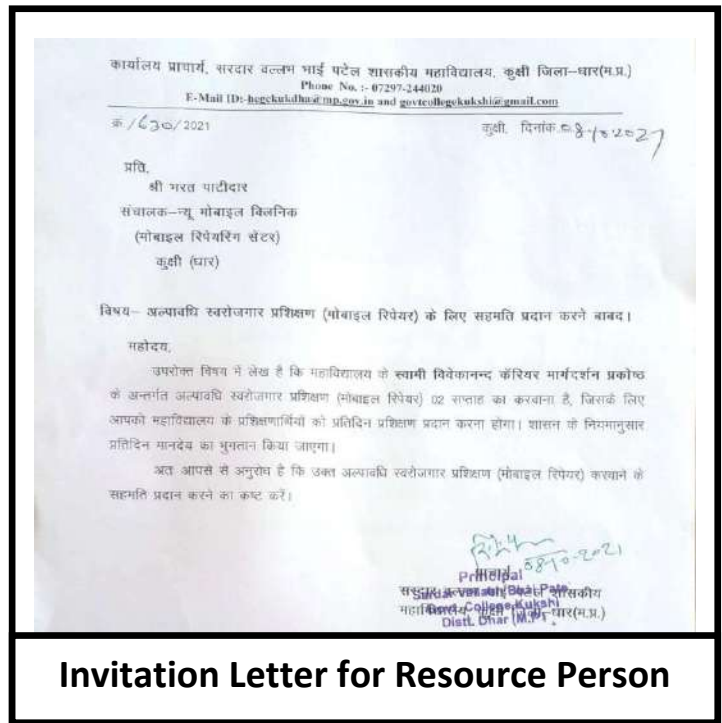 कार्यालय प्राचार्य, सरदार वल्लभ भाई पटेल शासकीय महाविद्यालय, कुक्षी जिला–धार(म.प्र.)
Phone No. :- 07297-244020
E-Mail ID:-hegckukdha@mp.gov.in and govtcollegekukshi@gmail.com
क्र./630/2021
कुक्षी, दिनांक 08-10-2021
प्रति,
श्री भरत पाटीदार
संचालक–न्यू मोबाइल क्लिनिक
(मोबाइल रिपेयरिंग सेंटर)
कुक्षी (धार)
विषय– अल्पावधि स्वरोजगार प्रशिक्षण (मोबाइल रिपेयर) के लिए सहमति प्रदान करने बाबद।
महोदय,
उपरोक्त विषय में लेख है कि महाविद्यालय के स्वामी विवेकानन्द कॅरियर मार्गदर्शन प्रकोष्ठ
के अन्तर्गत अल्पावधि स्वरोजगार प्रशिक्षण (मोबाइल रिपेयर) 02 सप्ताह का करवाना है, जिसके लिए
आपको महाविद्यालय के प्रशिक्षणार्थियों को प्रतिदिन प्रशिक्षण प्रदान करना होगा। शासन के नियमानुसार
प्रतिदिन मानदेय का भुगतान किया जाएगा।
अतः आपसे से अनुरोध है कि उक्त अल्पावधि स्वरोजगार प्रशिक्षण (मोबाइल रिपेयर) करवाने के
सहमति प्रदान करने का कष्ट करें।
08-10-2021
प्राचार्य
Principal
सरदार वल्लभ भाई पटेल शासकीय
Sardar Vallabh Bhai Patel
महाविद्यालय कुक्षी जिला–धार(म.प्र.)
Govt. College Kukshi
Distt. Dhar (M.P.)
Invitation Letter for Resource Person